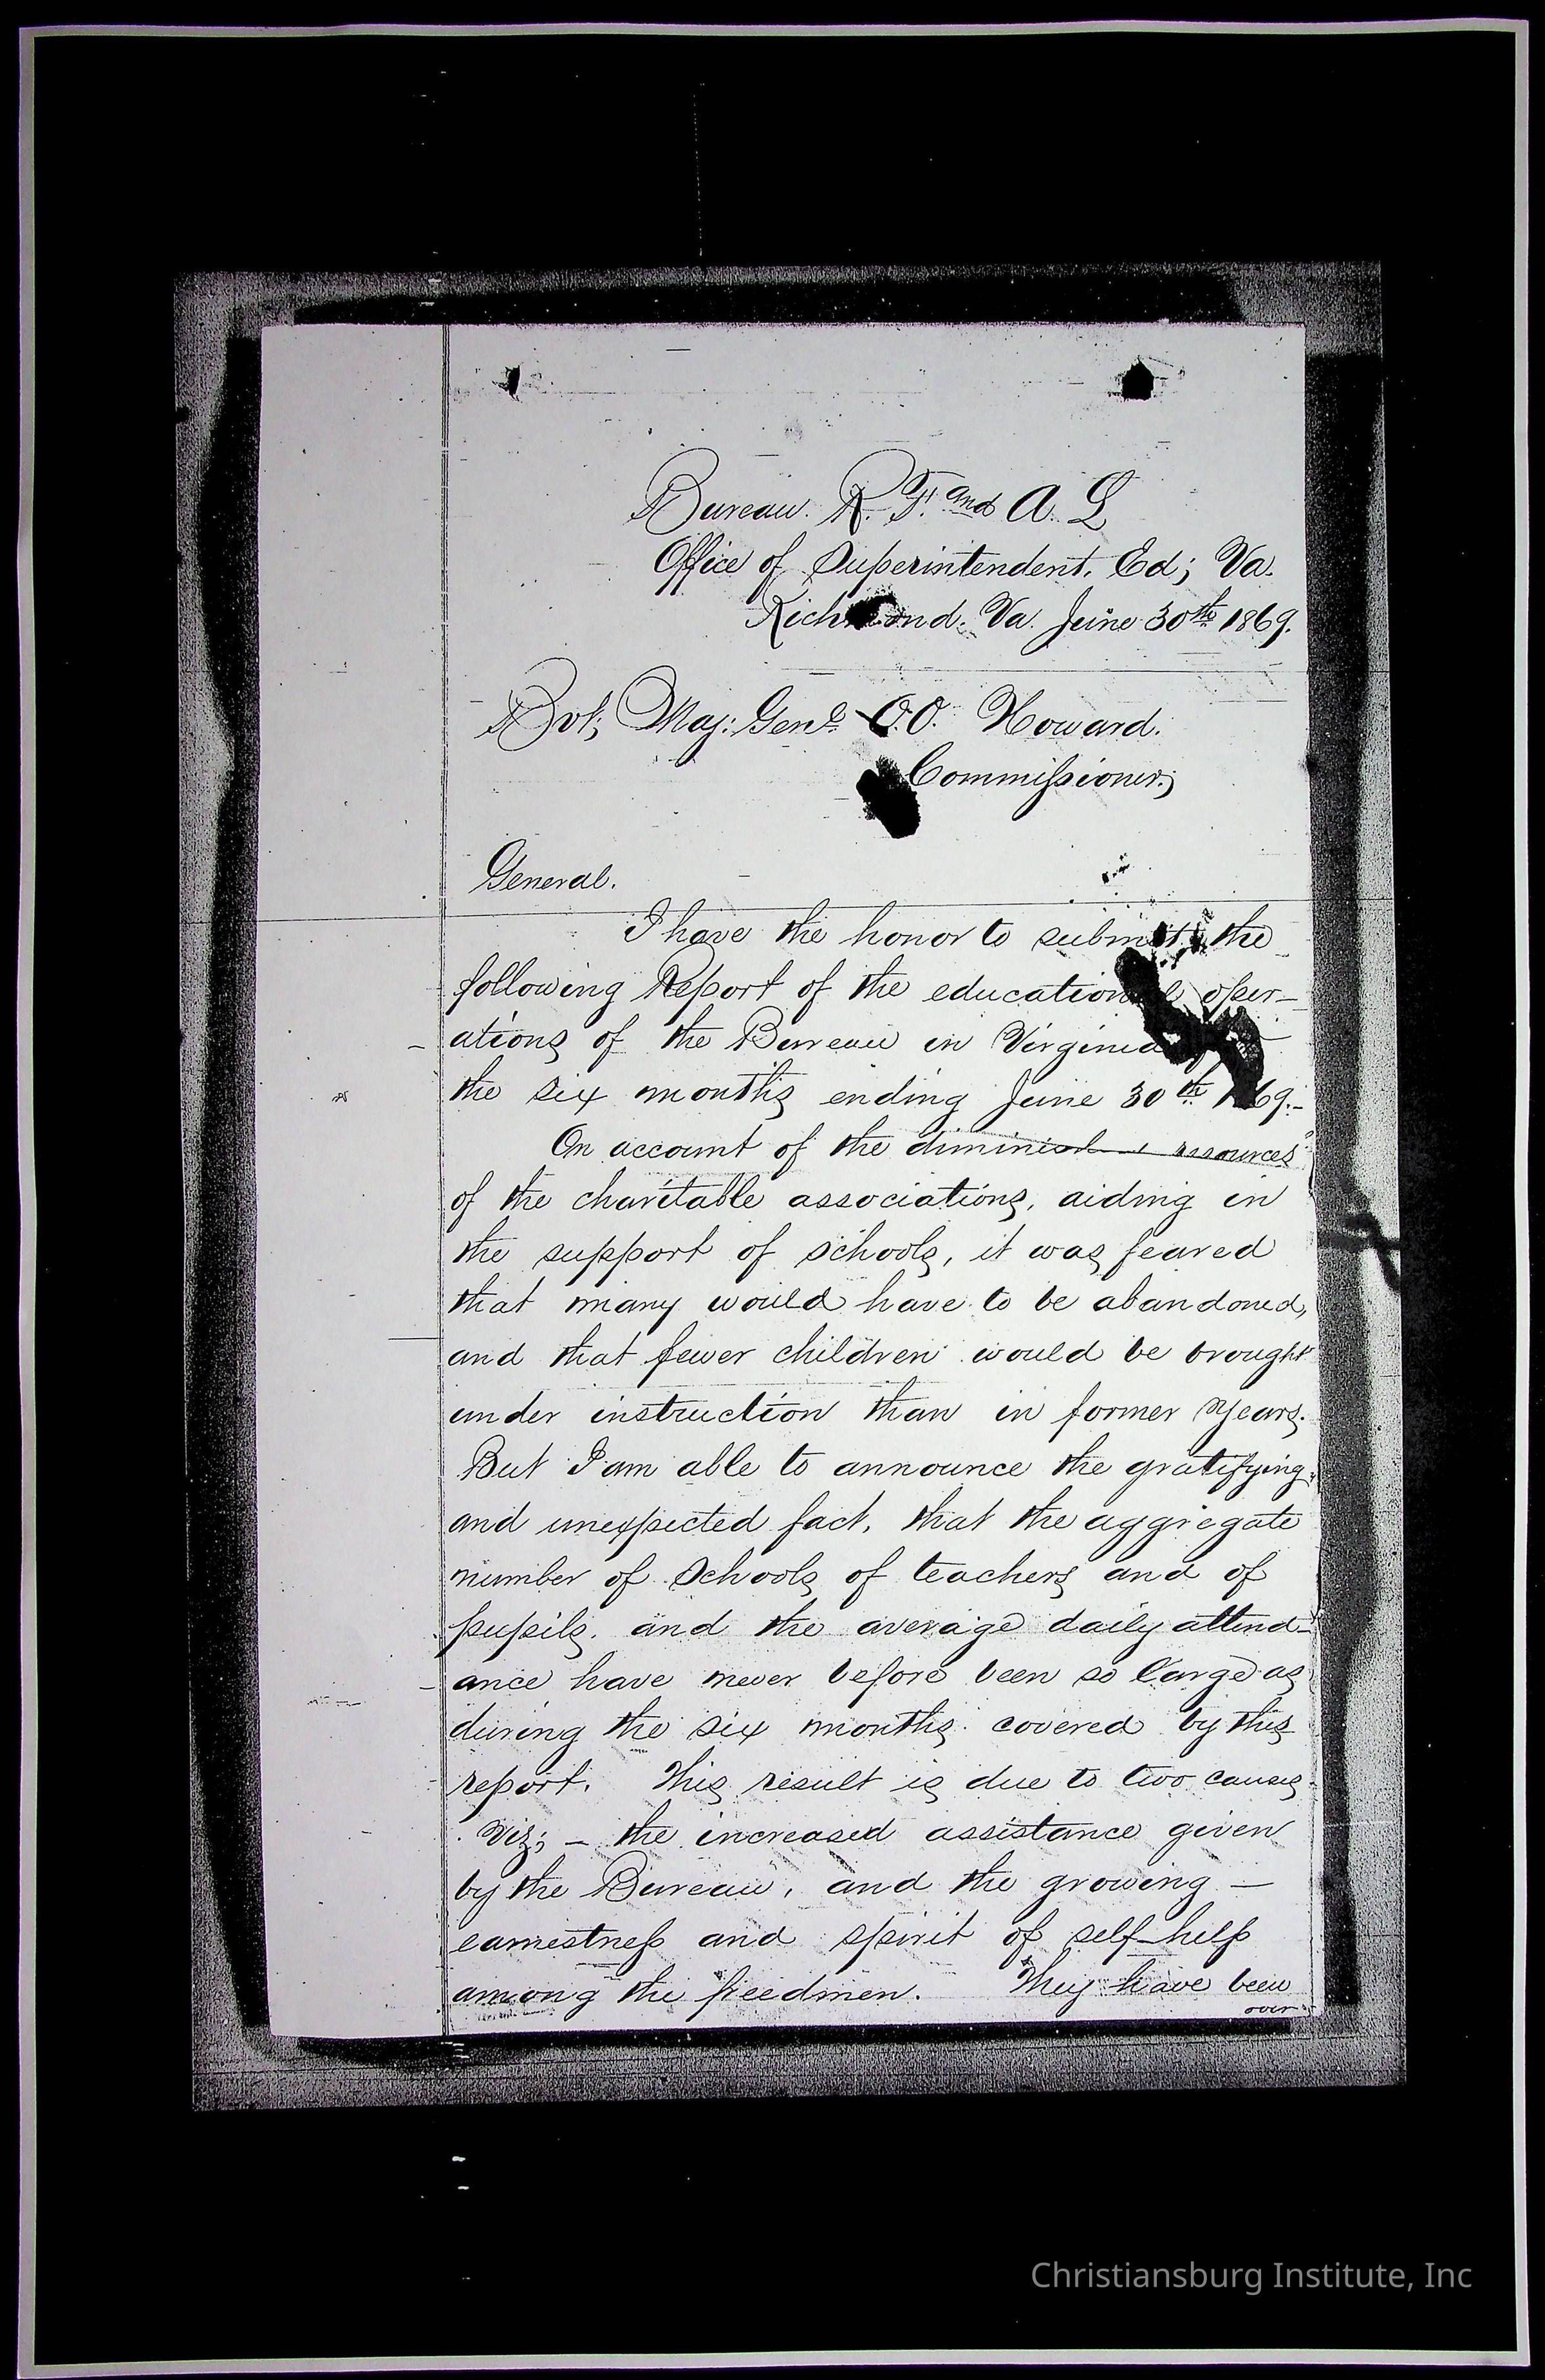 Bureau. R. F. and A. L
Office of Superintendent. Ed; Va.
Richmond. Va. June 30th 1869.
Bvt; Maj: Genl O.O. Howard.
Commissioner;
General.
I have the honor to submit the
following Report of the educational oper-
ations of the Bureau in Virginia
the six months ending June 30th 1869.-
On account of the diminished resources
of the charitable associations, aiding in
the support of schools, it was feared
that many would have to be abandoned,
and that fewer children would be brought
under instruction than in former years.
But I am able to announce the gratifying
and unexpected fact, that the aggregate
number of Schools of teachers and of
pupils. and the average daily attend-
ance have never before been so large as
during the six months covered by this
report. This result is due to two causes
Viz; - the increased assistance given
by the Bureau, and the growing -
earnestness and spirit of self-help
among the freedmen. They have been
over
Christiansburg Institute, Inc